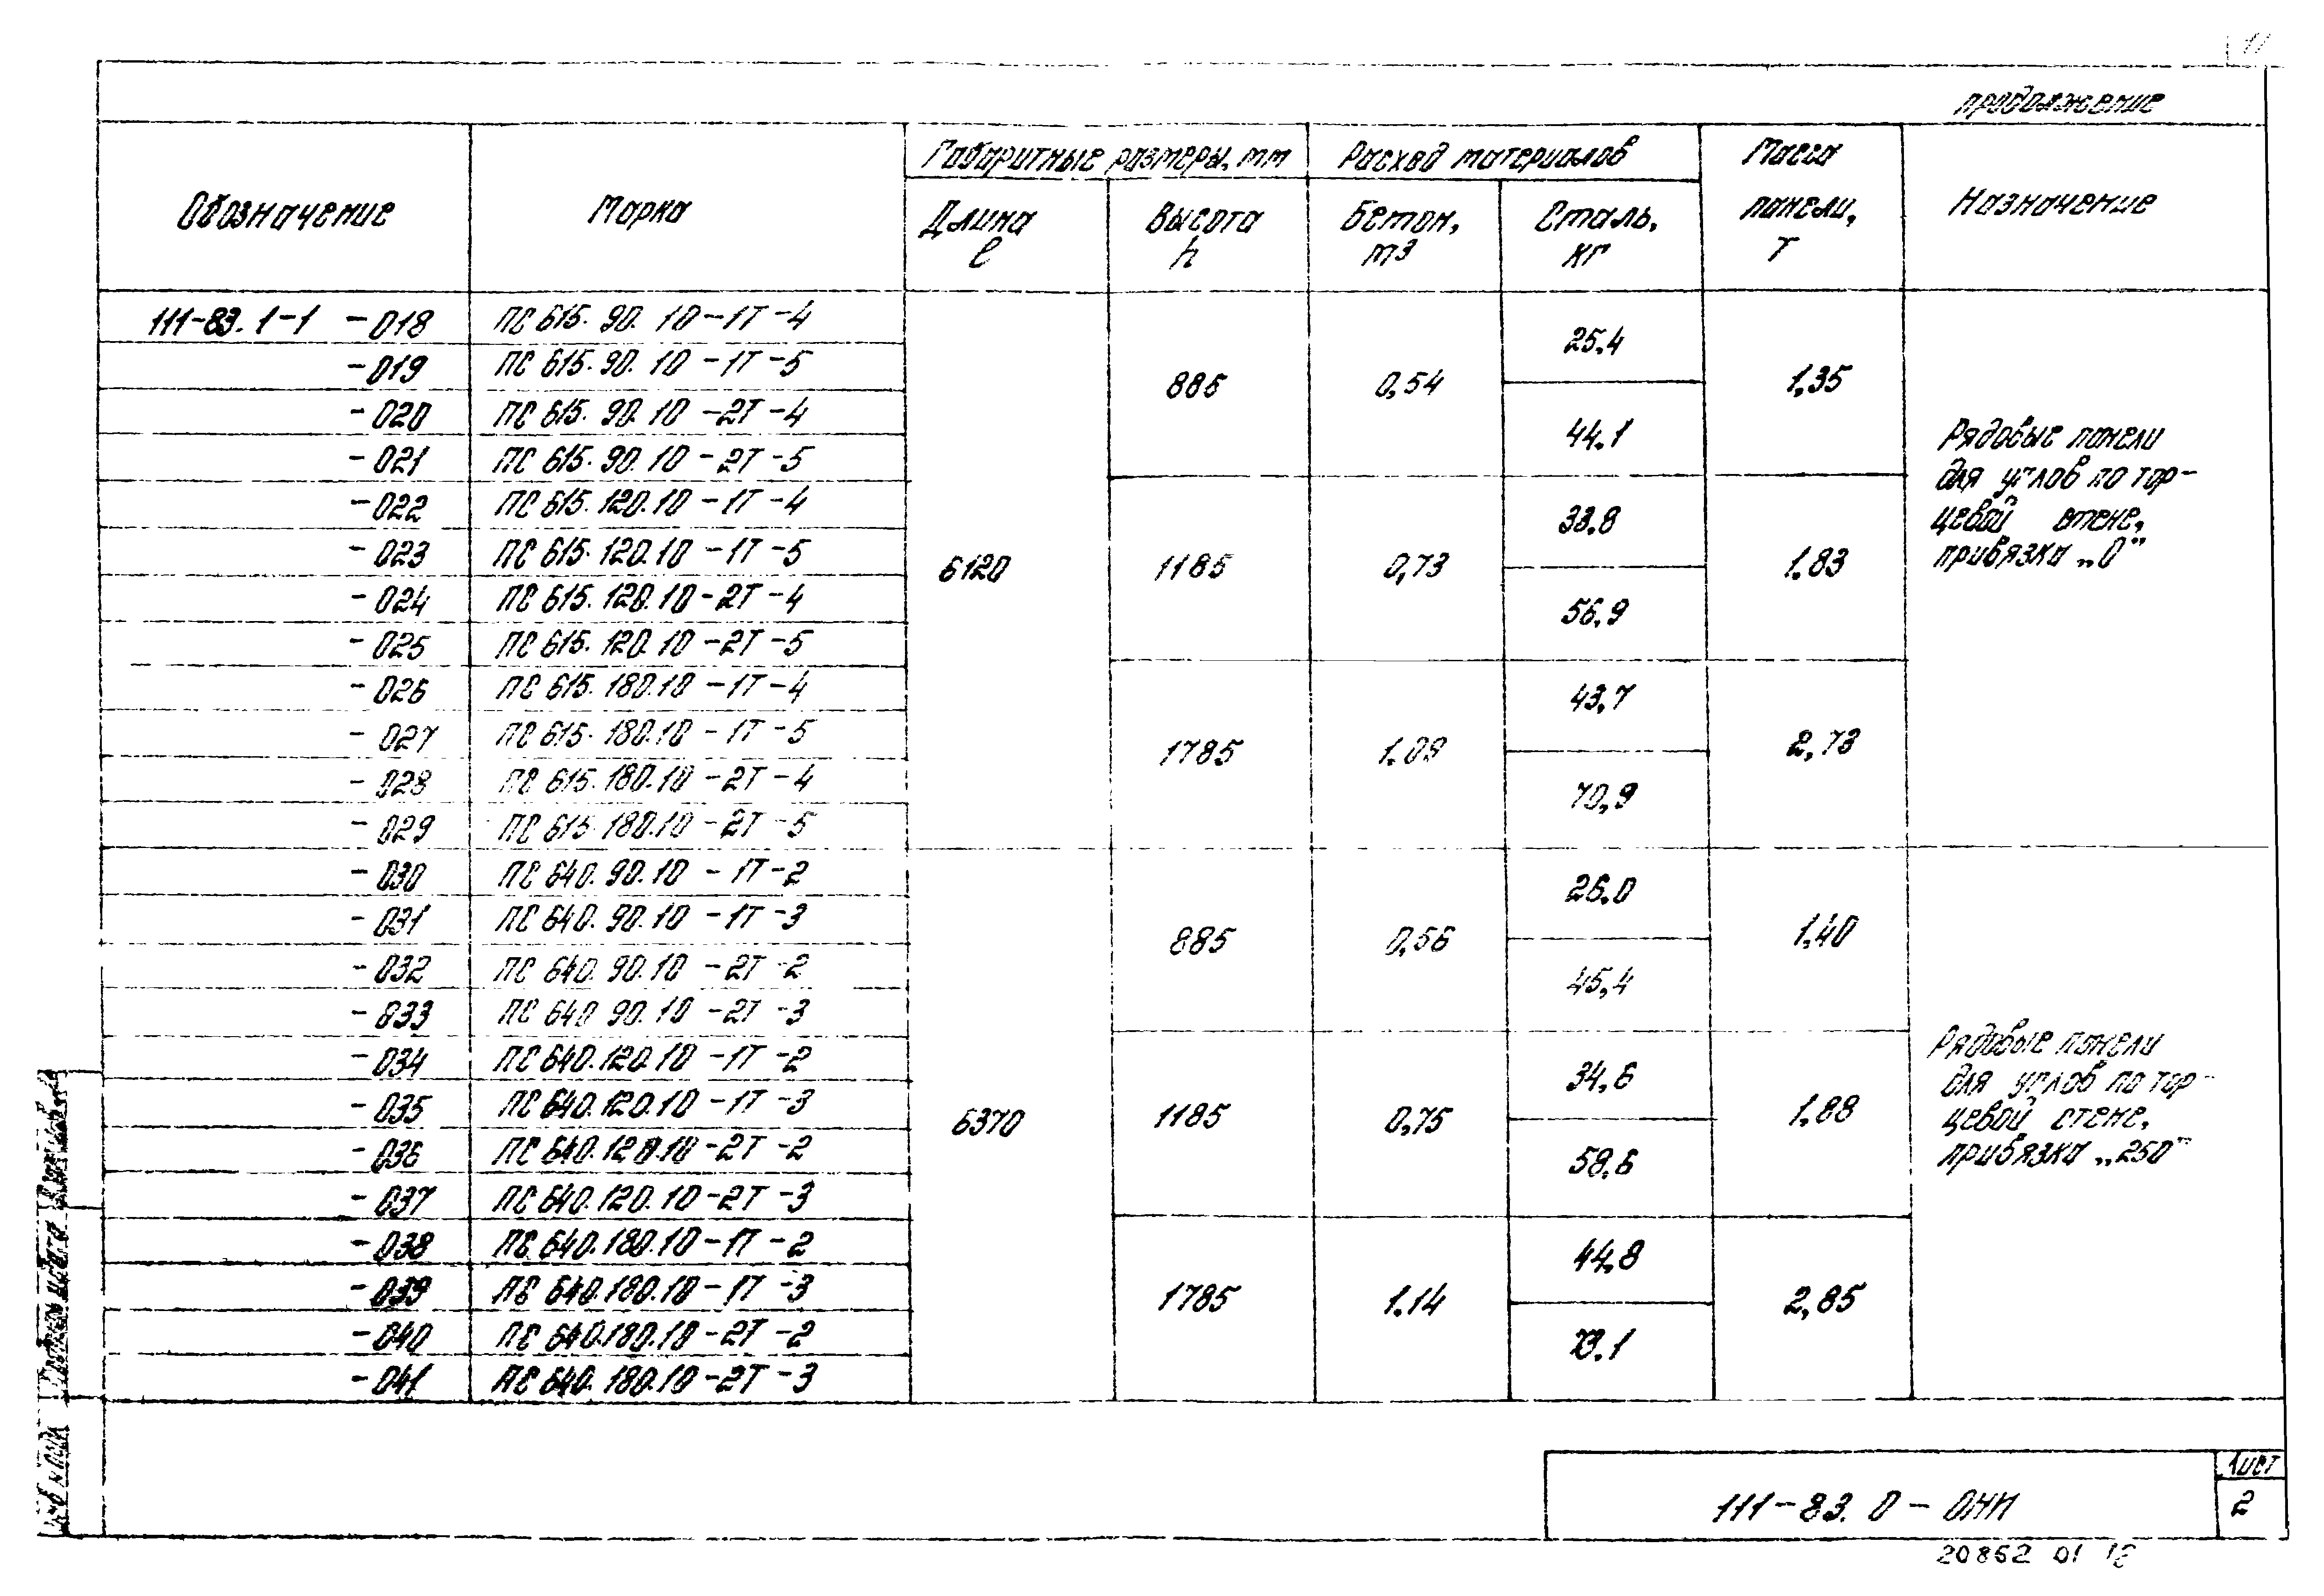 11
продолжение
Обозначение
Марка
Габаритные размеры, мм
Расход материалов
Масса панели, т
Назначение
Длина ℓ
Высота h
Бетон, м3
Сталь, кг
111-83.1-1 -018 ПС 615.90.10-1Т-4
-019 ПС 615.90.10-1Т-5
-020 ПС 615.90.10-2Т-4
-021 ПС 615.90.10-2Т-5
-022 ПС 615.120.10-1Т-4
-023 ПС 615.120.10-1Т-5
-024 ПС 615.120.10-2Т-4
-025 ПС 615.120.10-2Т-5
-026 ПС 615.180.10-1Т-4
-027 ПС 615.180.10-1Т-5
-028 ПС 615.180.10-2Т-4
-029 ПС 615.180.10-2Т-5
6120
885 0,54 25.4 1.35
44.1
1185 0,73 33.8 1.83
56.9
1785 1.09 43.7 2,73
70,9
Рядовые панели
для углов по тор-
цевой стене,
привязка „0"
-030 ПС 640.90.10-1Т-2
-031 ПС 640.90.10-1Т-3
-032 ПС 640.90.10-2Т-2
-033 ПС 640.90.10-2Т-3
-034 ПС 640.120.10-1Т-2
-035 ПС 640.120.10-1Т-3
-036 ПС 640.120.10-2Т-2
-037 ПС 640.120.10-2Т-3
-038 ПС 640.180.10-1Т-2
-039 ПС 640.180.10-1Т-3
-040 ПС 640.180.10-2Т-2
-041 ПС 640.180.10-2Т-3
6370
885 0,56 26.0 1,40
45,4
1185 0,75 34,6 1,88
58,6
1785 1.14 44,8 2,85
73.1
Рядовые панели
для углов по тор-
цевой стене,
привязка „250"
111-83.0-ОНИ
Лист
2
20862 01